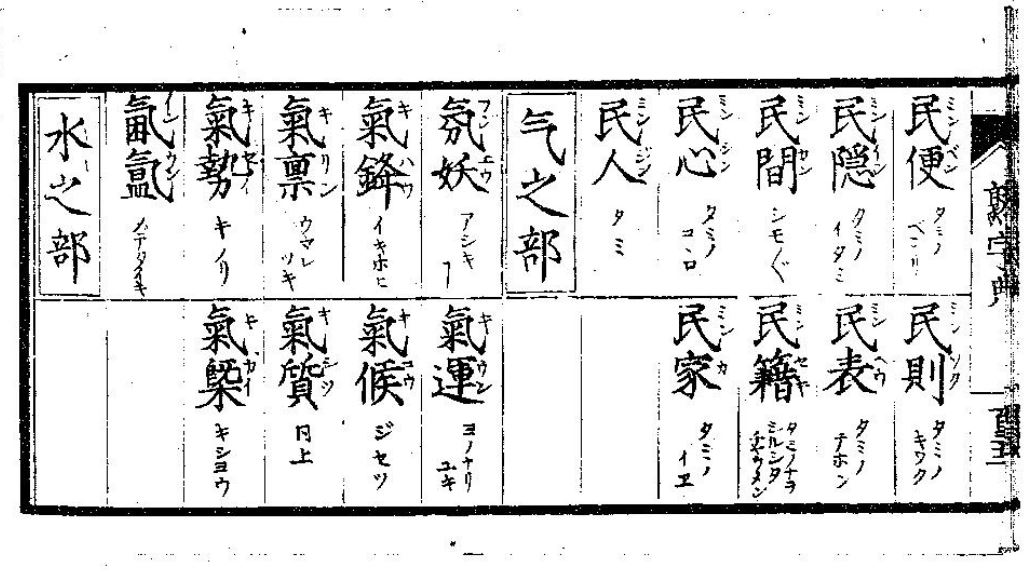 民便 ミンベン タミノベンリ
民隠 ミンイン タミノイタミ
民間 ミンカン シモ〲
民心 ミンシン タミノコヽロ
民人 ミンジン タミ
气之部
氛妖 フンエウ アシキ
氣鋒 キハウ イキホヒ
氣禀 キリン ウマレツキ
氣勢 キセイ キノリ
氤氳 インウン
水之部
民則 ミンソク タミノキワク
民表 ミンヘウ タミノテホン
民籍 ミンセキ タミノナヲシルシタチヤウメン
民家 ミンカ タミノイエ
氣運 キウン ヨノナリユキ
氣候 キコウ ジセツ
氣質 キシツ 同上
氣槩 キガイ キシヨウ
熟字典